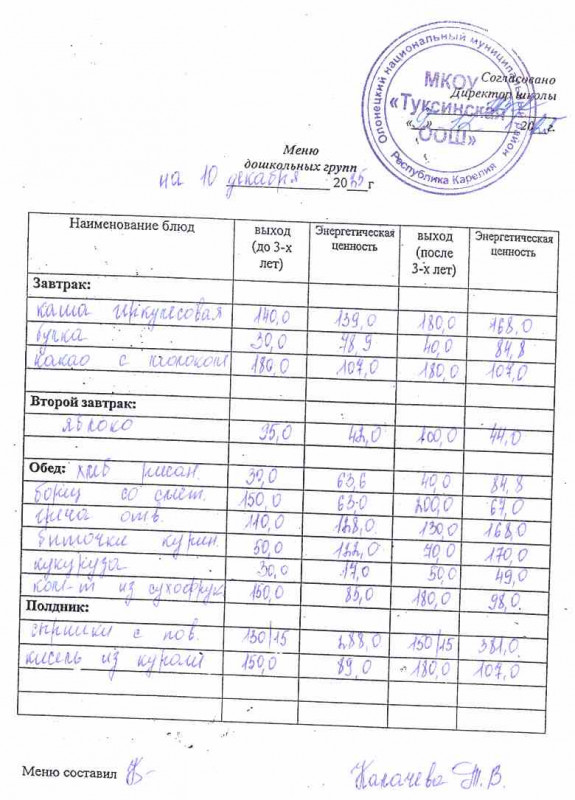 Согласовано
Директор школы
20 г.
Олонецкий национальный муниципальный район
МКОУ
«Туксинская
ООШ»
Республика Карелия
Меню
дошкольных групп
на 10 декабря 2025 г
Наименование блюд выход (до 3-х лет) Энергетическая ценность выход (после 3-х лет) Энергетическая ценность
Завтрак:
каша геркулесовая 140,0 139,0 180,0 168,0
булка 30,0 78,9 40,0 84,8
какао с молоком 180,0 107,0 180,0 107,0
Второй завтрак:
яблоко 95,0 42,0 100,0 44,0
Обед: хлеб ржан. 30,0 63,6 40,0 84,8
борщ со смет. 150,0 63,0 200,0 67,0
греча отв. 110,0 128,0 130,0 168,0
биточки курин. 50,0 122,0 70,0 170,0
кукуруза 30,0 17,0 50,0 49,0
ком-т из сухофрук 150,0 83,0 180,0 98,0
Полдник:
с пов. 130/15 288,0 150/15 381,0
кисель из 150,0 89,0 180,0 107,0
Меню составил
Капачева Т.В.